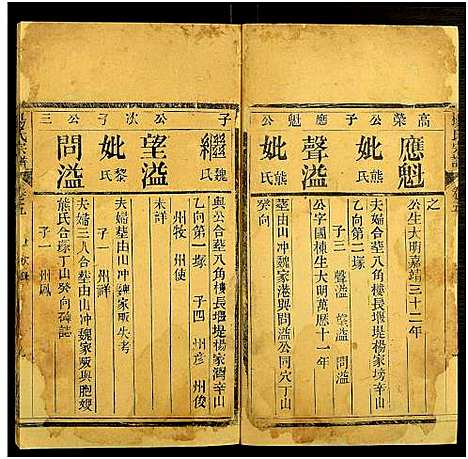 高榮公子應魁公
應魁
妣熊氏
聲溢
妣熊氏
之
公生大明嘉靖三十二年
夫婦合塟八角樓長堰堤楊家塝辛山
乙向第二塚
子三 聲溢 望溢 問溢
公字國棟生大明萬曆十一年
塟由山冲魏家港與問溢公同穴丁山
癸向
子公次子公三
繼魏氏
望溢
妣黎氏
問溢
與公合塟八角樓長堰堤楊家灣辛山
乙向第一塚 子四 州彦 州俊
州牧 州使
未詳
夫婦塟由山冲魏家畈失考
子一 州詳
夫婦三人合塟由山冲魏家畈與胞嫂
熊氏合塚丁山癸向碑誌
子一 州鳳